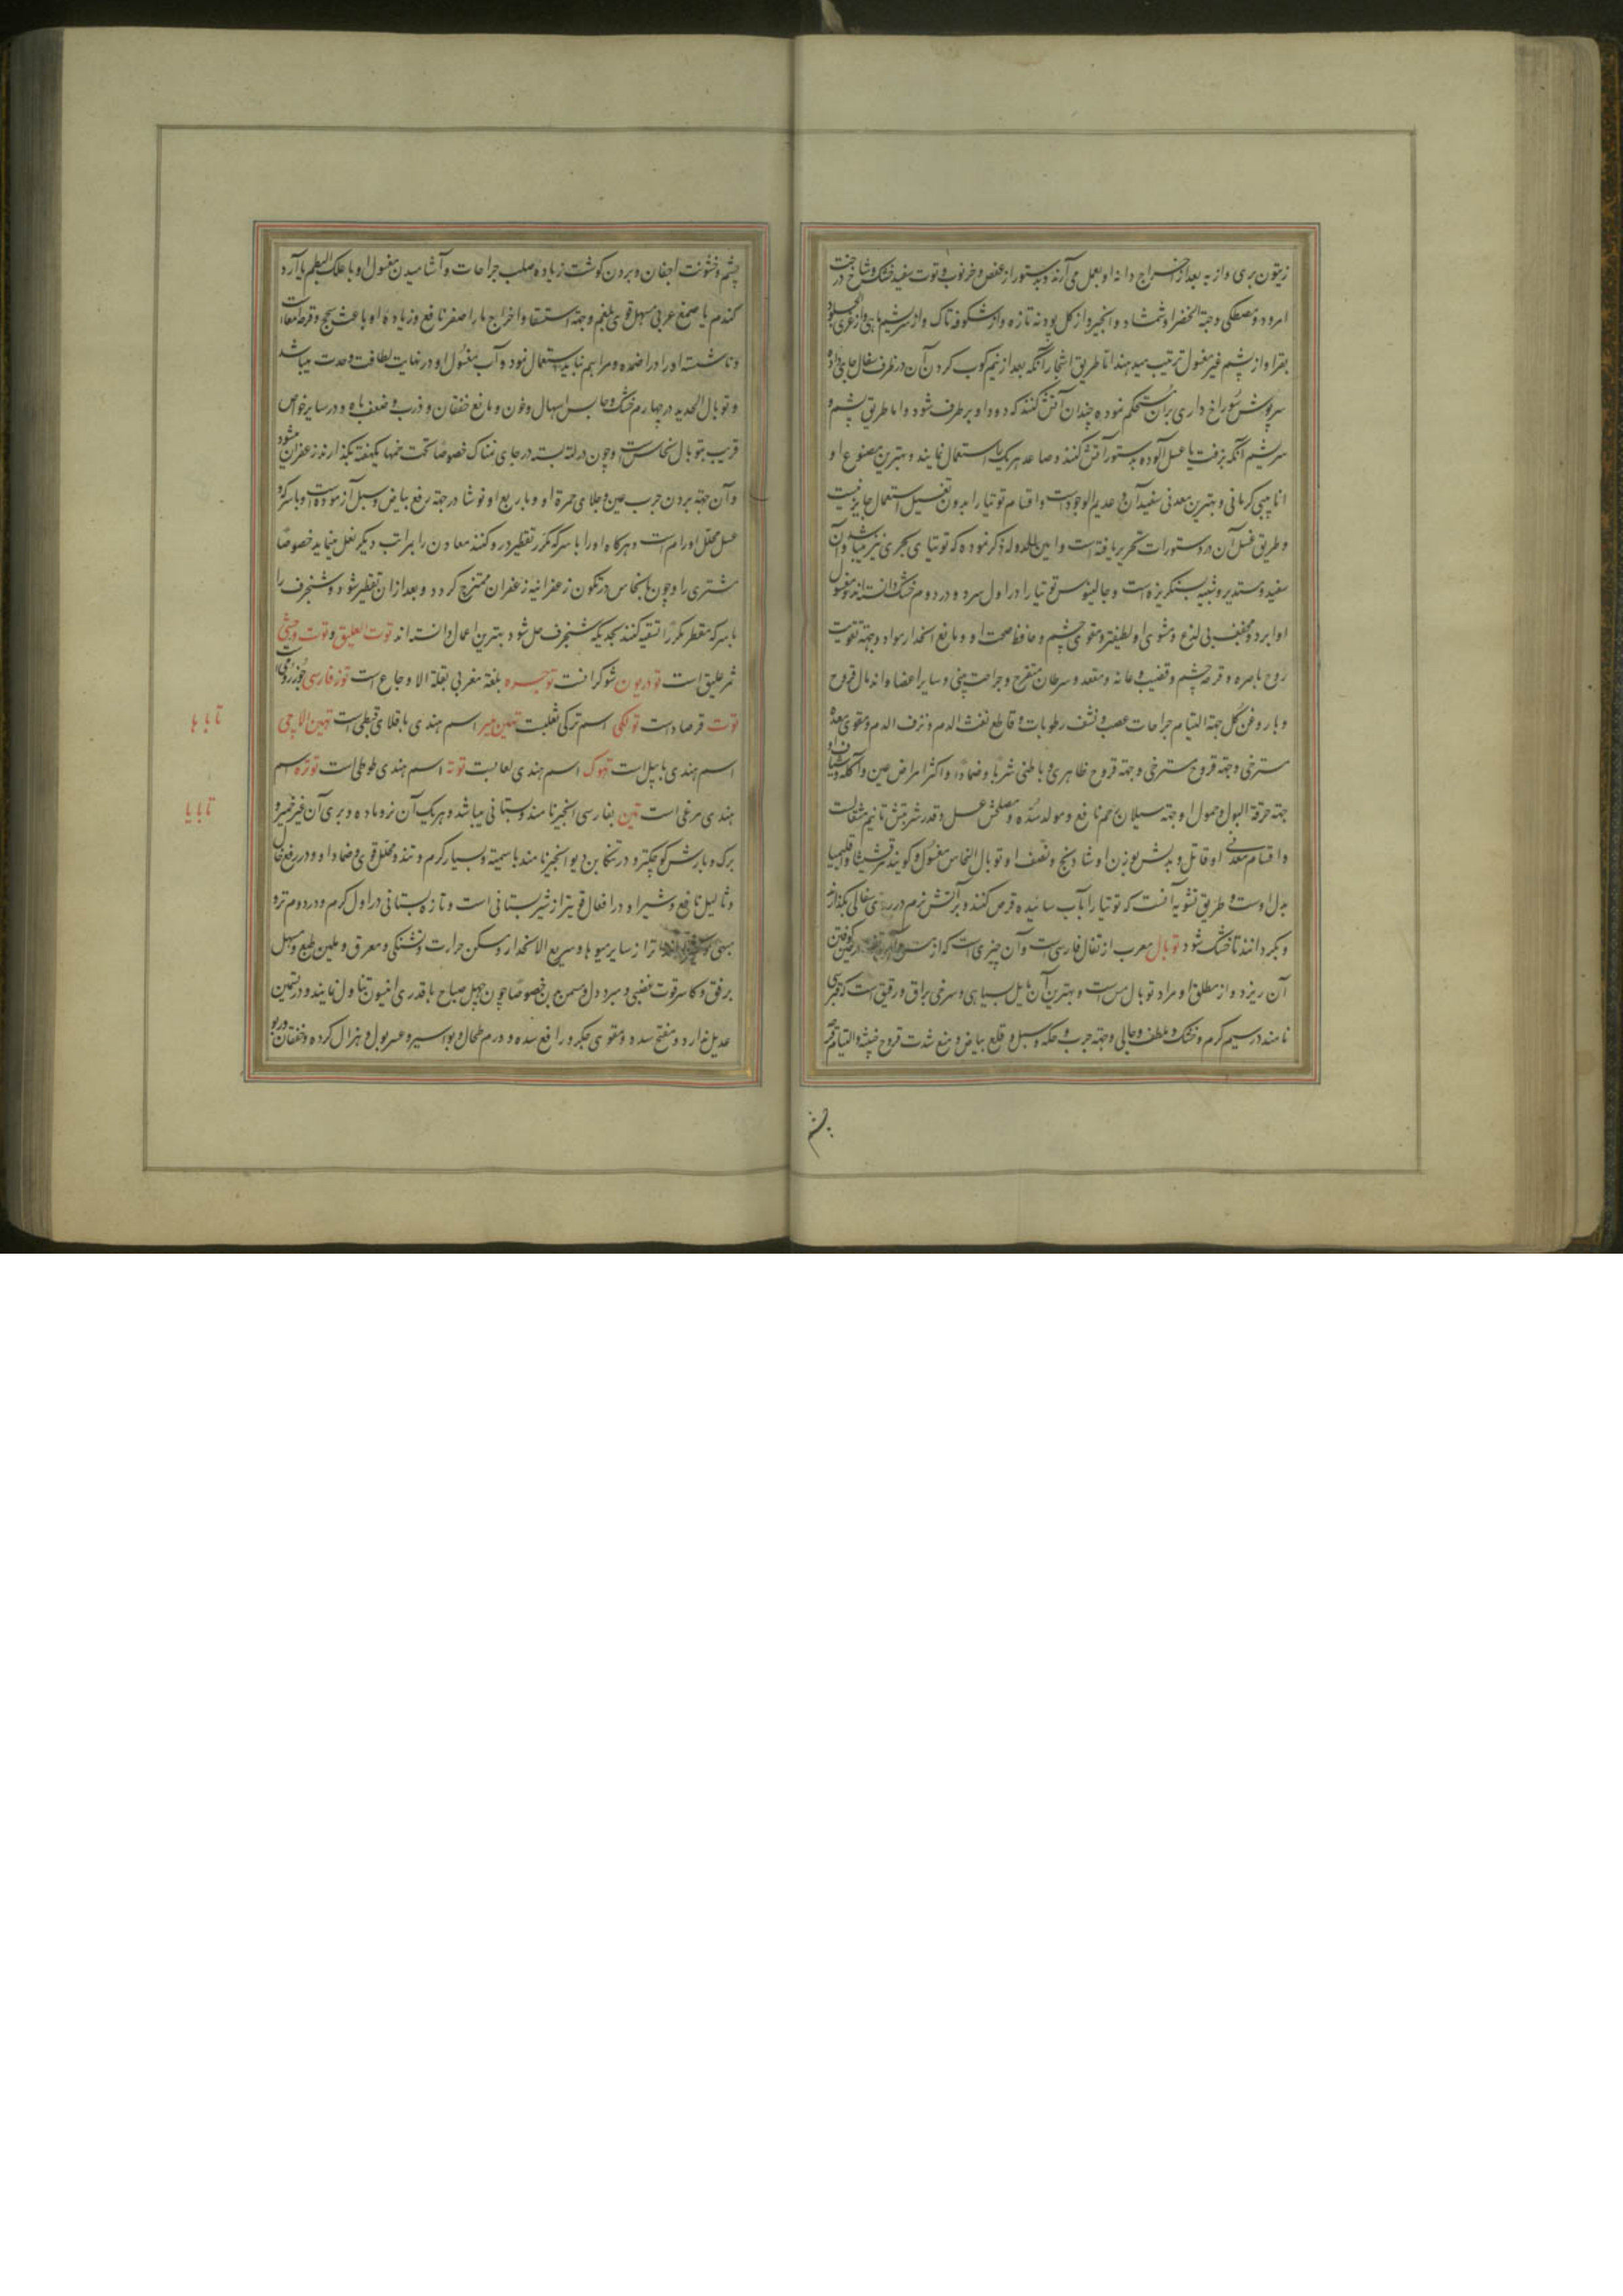 زیتون بری و از به بعد از اخراج دانه او بعمل می آرند و بدستور از عفص و خرنوب و توت سفید خشک و شاخ درخت
امرود و مصطکی و حبة الخضراء و شمشاد و انجیر و از کل پودنه تازه و از شکوفه تاک و از سریشم ماهی و از غری الجلود
بقر او از پشم غیر مغسول ترتیب میدهند اما طریق اشجار آنکه بعد از نیم کوب کردن آن در ظرف سفال جای داده
سرپوش سوراخ داری بر آن مستحکم نموده چندان آتش کنند که دود او برطرف شود و اما طریق پشم و
سریشم آنکه بزفت یا عسل آلوده بدستور آتش کنند و صاعد هریک را استعمال نمایند و بهترین مصنوع او
انابیبی کرمانی و بهترین معدنی سفید آن و عدیم الوجود است و اقسام توتیا را بدون تغسیل استعمال جایز نیست
و طریق غسل آن در دستورات تحریر یافته است و امین الدوله ذکر نموده که توتیای بحری نیز میباشد و آن
سفید و مستدیر و شبیه بسنکریزه است و جالینوس توتیا را در اول سرد و در دوم خشک دانسته اند و مغسول
او ابرد و مجفف بی لذع و مشوی او لطیفتر و مقوی چشم و حافظ صحت او و مانع انحدار مواد و جهة تقویت
روح باصره و قرحه چشم و قضیب و عانه و مقعد و سرطان متقرح و جراحت بینی و سایر اعضا و اندمال قروح
و با روغن کل جهة التیام جراحات عصب و نشف رطوبات و قاطع نفث الدم و نزف الدم و مقوی معده
مسترخی و جهة قروح مسترخی و جهة قروح ظاهری و باطنی شربا و ضمادا و اکثر امراض عین و آکله و شیاف او
جهة حرقة البول و حمول او جهة سیلان رحم نافع و مولد سده و مصلحش عسل و قدر شربتش تا نیم مثقالست
و اقسام معدنی او قاتل و بدلش بوزن او شادنج و نصف او توبال النحاس مغسول و کویند مرقشیشا و اقلیمیا
بدل اوست و طریق تشویه آنست که توتیا را بآب سائیده قرص کنند و بر آتش نرم در سفالی بکذارند
و بکردانند تا خشک شود توبال معرب از تفال فارسی است و آن چیزی است که از مس در حین کوفتن
آن ریزد و از مطلق او مراد توبال مس است و بهترین آن مایل بسیاهی و سرخی براق و رقیق است که قبرسی
نامند در سیم کرم و خشک و ملطف و جالی و جهة جرب و حکه و سبل و قلع بیاض و منع شدت قروح خبیثه و التیام قرحه
چشم
چشم و خشونت اجفان و بردن کوشت زیاده صلب جراحات و آشامیدن مغسول او با علک البطم یا آرد
کندم یا صمغ عربی مسهل قوی بلغم و جهة استسقا و اخراج ماء اصفر نافع و زیاده او باعث سحج و قرحه امعاست
و ناشسته او را در اضمده و مراهم نباید استعمال نمود و آب مغسول او در نهایت لطافت و حدت میباشد
و توبال الحدید در چهارم خشک و حابس اسهال و خون و مانع خفقان و ذرب و ضعف باه و در سایر خواص
قریب بتوبال نحاس است و چون در لته بسته در جای نمناک خصوصا تحت خمها یکهفته بکذارند زعفران میشود
و آن جهة بردن جرب عین و جلای حمرة او و با ربع او نوشادر جهة رفع بیاض و سبل آزموده است و با سرکه و
عسل محلل اورام است و هرکاه او را با سرکه مکرر تقطیر در کنند معادن را بمراتب دیکر نقل مینماید خصوصا
مشتری را و چون با نحاس در تکون زعفرانیه زعفران ممتزج کردد و بعد از آن تقطیر شود و شنجرف را
با سرکه مقطر مکرر تسقیه کنند بحدیکه شنجرف حل شود بهترین اعمال دانسته اند توت العلیق و توت وحشی
ثمر علیق است تودریون شوکرانست توجره بلغة مغربی بقلة الاوجاع است توز فارسی خوز رومی
توت فرصاد است تولکی اسم ترکی ثعلبست تهلین میر اسم هندی باقلای قبطی است تهین الاچی
اسم هندی بابیل است تهوک اسم هندی لعابست توته اسم هندی طوطی است توژه اسم
هندی مرغی است تین بفارسی انجیر نامند و بستانی میباشد و هریک آن نر و ماده و بری آن غیر خمیر و
برک و بارش کوچکتر و در تنکابن دیو انجیر نامند باسمیته و بسیار کرم و تند و محلل قوی و ضماد او در رفع خال
و ثالیل نافع و شیر او در افعال قویتر از شیر بستانی است و تازه بستانی در اول کرم و در دوم تر و
تر از سایر میوها و سریع الانحدار و مسکن حرارت و تشنکی و معرق و ملین طبع و مسهل
برفق و کاسر قوت غضبی و مبرد دل و مسمن بدن خصوصا چون چهل صباح با قدری انیسون تناول نمایند و در تسمین
عدیل ندارد و مفتح سدد و مقوی جکر و رافع سده و ورم طحال و بواسیر و عسر بول و هزال کرده و خفقان و ربو
تابا با
تابایا